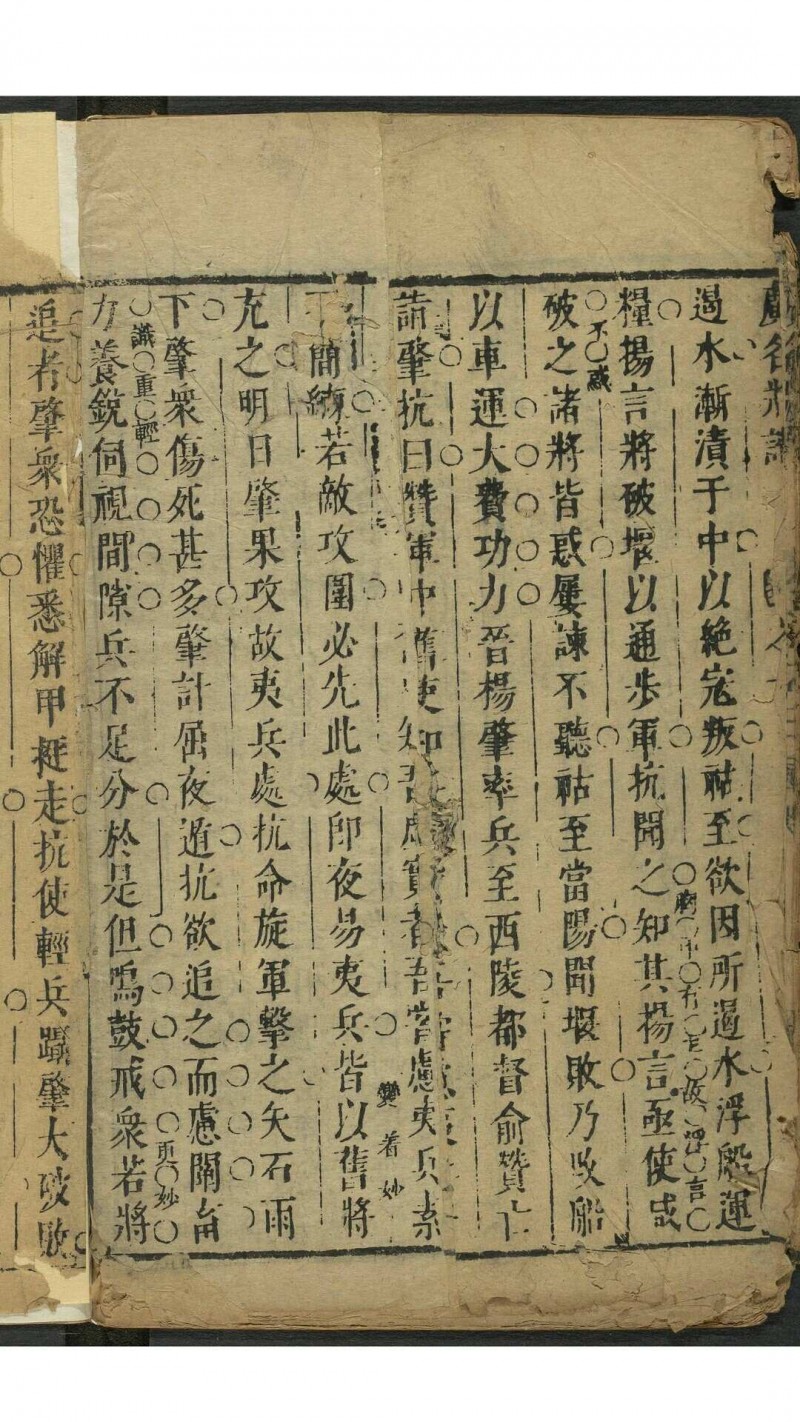 名將譜
遏水漸漬于中以絶寇叛祜至欲因所遏水浮船運
糧揚言將破堰以通步軍抗聞之知其揚言亟使咸
破之諸將皆惑屢諫不聽祜至當陽聞堰敗乃改船
不惑
以車運大費功力晉楊肇率兵至西陵都督俞贊亡
詣肇抗曰贊軍中舊吏知吾虛實者吾嘗慮夷兵素
不簡練若敵攻圍必先此處卽夜易夷兵皆以舊將
變着妙
充之明日肇果攻故夷兵處抗命旋軍擊之矢石雨
下肇衆傷死甚多肇計屈夜遁抗欲追之而慮闡畜
識重輕
更妙
力養銳伺視間隙兵不足分於是但鳴鼓戒衆若將
追者肇衆恐懼悉解甲挺走抗使輕兵躡肇大破敗